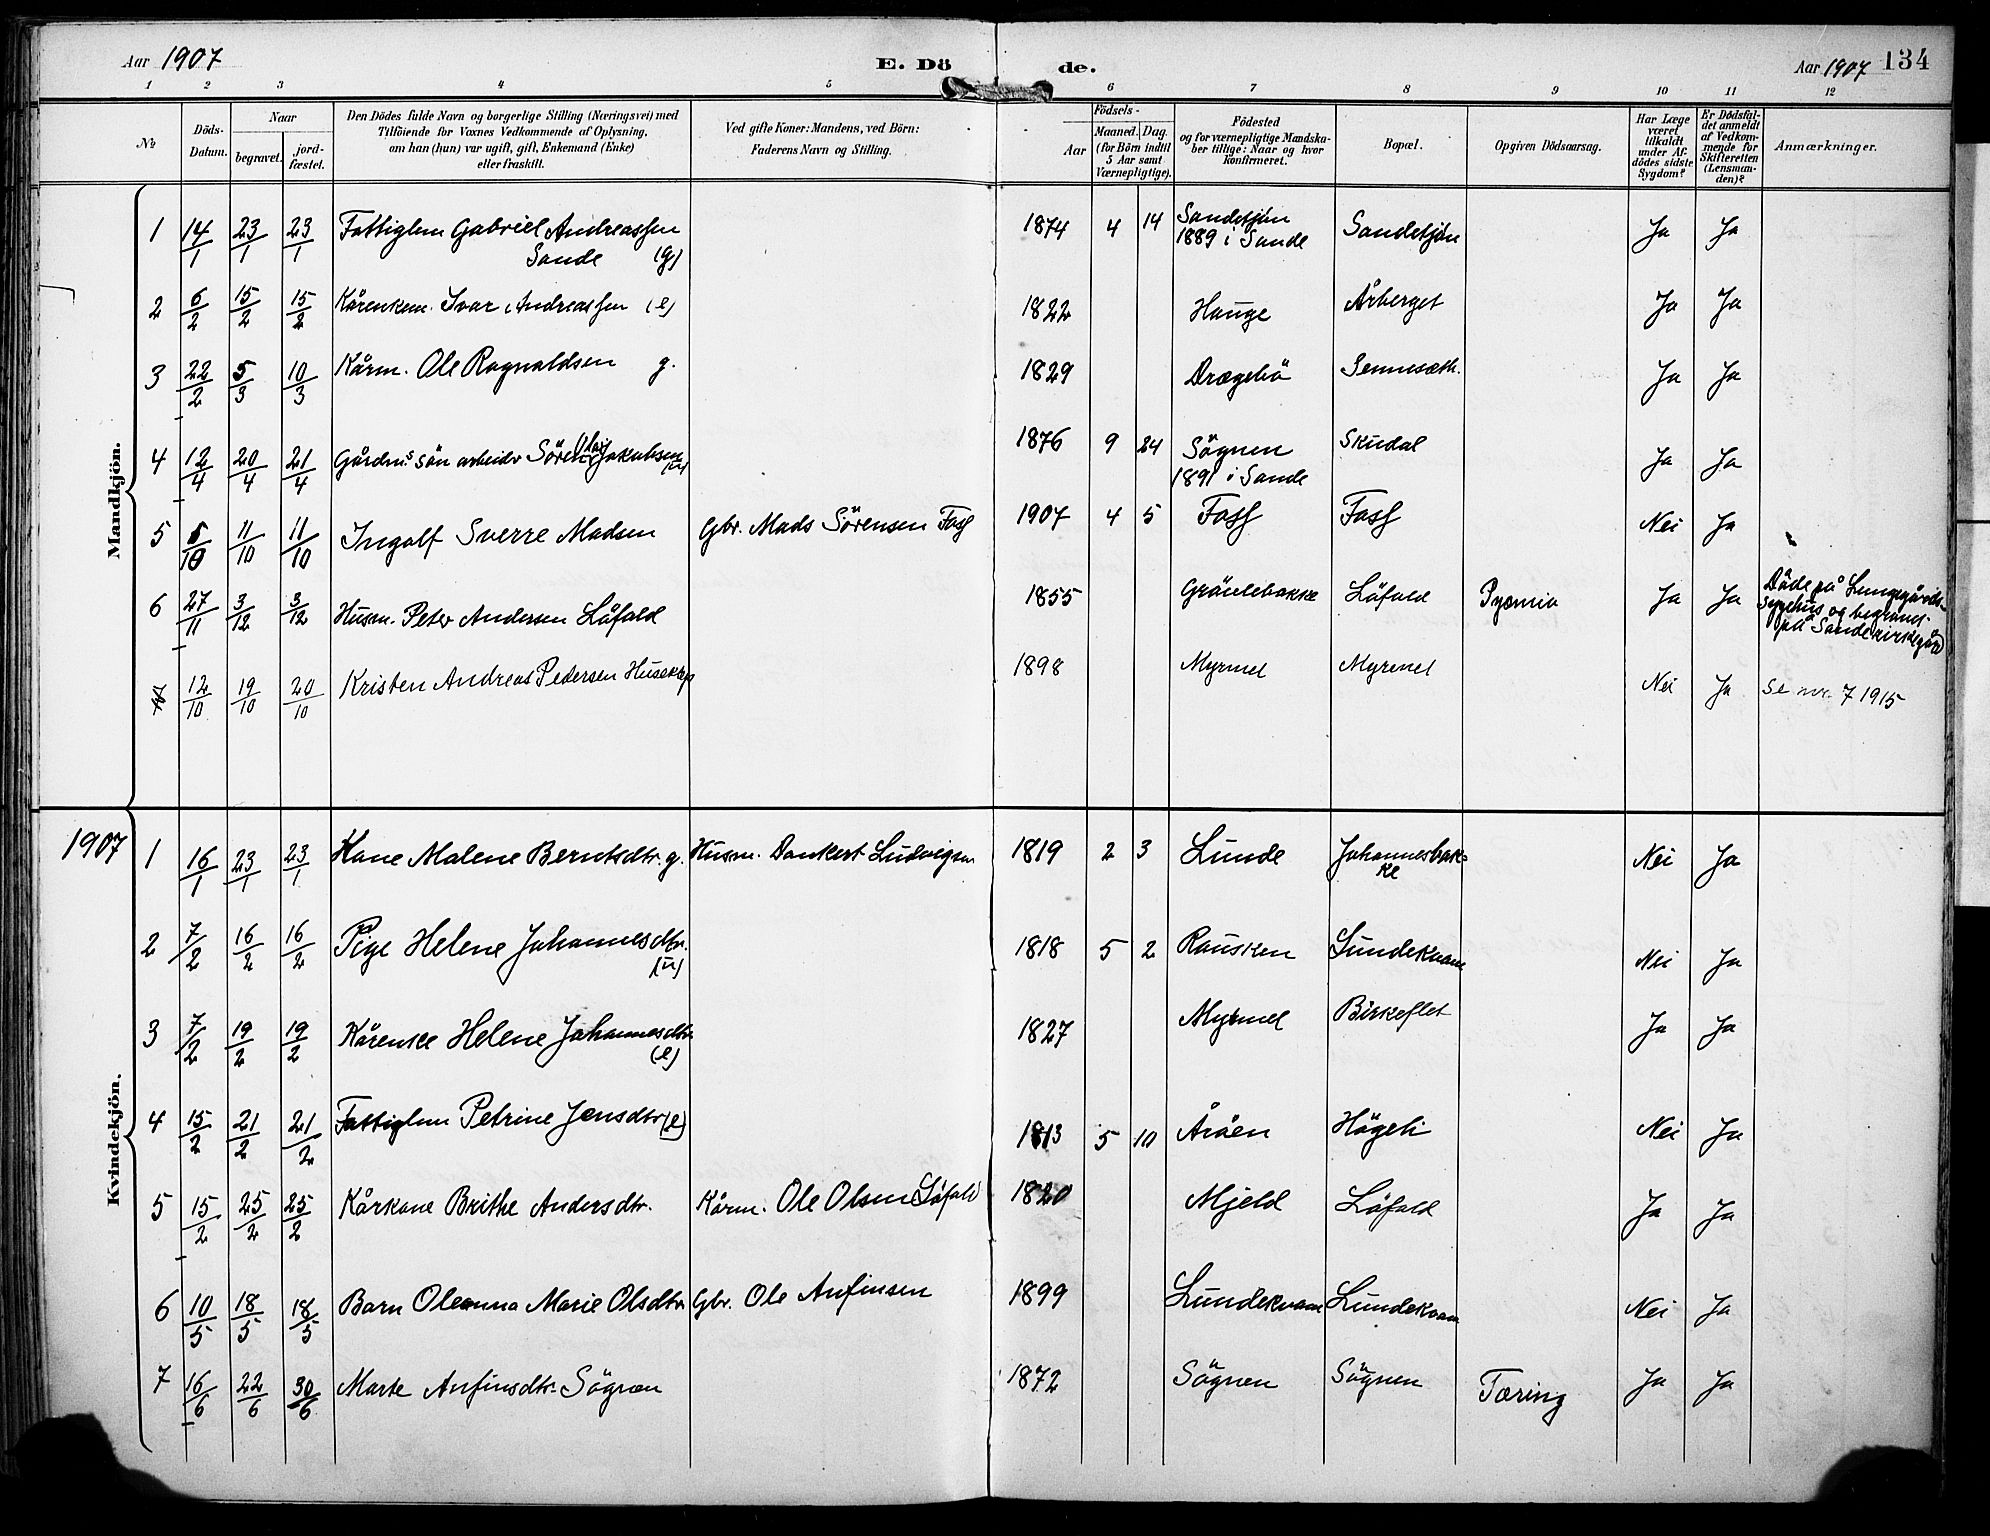 Aar 1907 E. Dö de. Aar 1907 134
1 2 3 4 5 6 7 8 9 10 11 12
No
Döds-
Datum.
Naar
begravet.
jord-
fæstet.
Den Dödes fulde Navn og borgerlige Stilling (Næringsvei) med
Tilföiende for Voxnes Vedkommende af Oplysning,
om han (hun) var ugift, gift, Enkemand (Enke)
eller fraskilt.
Ved gifte Koner: Mandens, ved Börn:
Faderens Navn og Stilling.
Födsels-
Aar
Maaned. Dag.
(for Börn indtil
5 Aar samt
Værnepligtige).
Födested
og for værnepligtige Mandska-
ber tillige: Naar og hvor
konfirmeret.
Bopæl.
Opgiven Dödsaarsag.
Har Læge
været
tilkaldt
under Af-
dödes sidste
Sygdom?
Er Dödsfal-
det anmeldt
af Vedkom-
mende for
Skifteretten
(Lensman-
den)?
Anmærkninger.
Mandkjön.
1 14/1 23/1 23/1 Fattiglem Gabriel Andreassen 1874 4 14 Sandetjön Sandetjön Ja Ja
Sande (g) 1889 i Sande
2 6/2 15/2 15/2 Kårenkem. Ivar Andreassen (e) 1822 Hauge Årberget Ja Ja
3 22/2 5/3 10/3 Kårm. Ole Ragnvaldsen g. 1829 Drægebö Sennesæth. Ja Ja
4 12/4 20/4 21/4 Gårdm.s sön arbeider Sören Jakobsen (u) 1876 9 24 Sögnen Skudal Ja Ja
1891 i Sande
5 5/10 11/10 11/10 Ingolf Sverre Madsen Gbr. Mads Sörensen Foss 1907 4 5 Foss Foss Nei Ja
6 27/11 3/12 3/12 Husm. Peter Andersen Låfald 1855 Gröulebakke Låfald Pyæmia Ja Ja Döde på Lungegårds-
sygehus og begravet
på Sande kirkegård
7 12/10 19/10 20/10 Kristen Andreas Pedersen Husetrep 1898 Myrmel Myrmel Nei Ja Se nr. 7 1915
Kvindekjön.
1907 1 16/1 23/1 23/1 Kone Malene Berntsdtr. g. Husm. Dankert Ludvigsen 1819 2 3 Lunde Johannesbak-
ke Nei Ja
2 7/2 16/2 16/2 Pige Helene Johannesdtr. 1818 5 2 Rausken Lundekvam Nei Ja
(u)
3 7/2 19/2 19/2 Kårenke Helene Johannesdtr. 1827 Myrmel Birkeflet Ja Ja
(e)
4 15/2 21/2 21/2 Fattiglem Petrine Jensdtr (e) 1813 5 10 Åråen Högeli Nei Ja
5 15/2 25/2 25/2 Kårkone Brithe Andersdtr. Kårm. Ole Olsen Låfald 1820 Mjeld Låfald Ja Ja
6 10/5 18/5 18/5 Barn Oleanna Marie Olsdtr Gbr. Ole Anfinsen 1899 Lundekvam Lundekvam Nei Ja
7 16/6 22/6 30/6 Marte Anfinsdtr. Sögnen 1872 Sögnen Sögnen Tæring Ja Ja